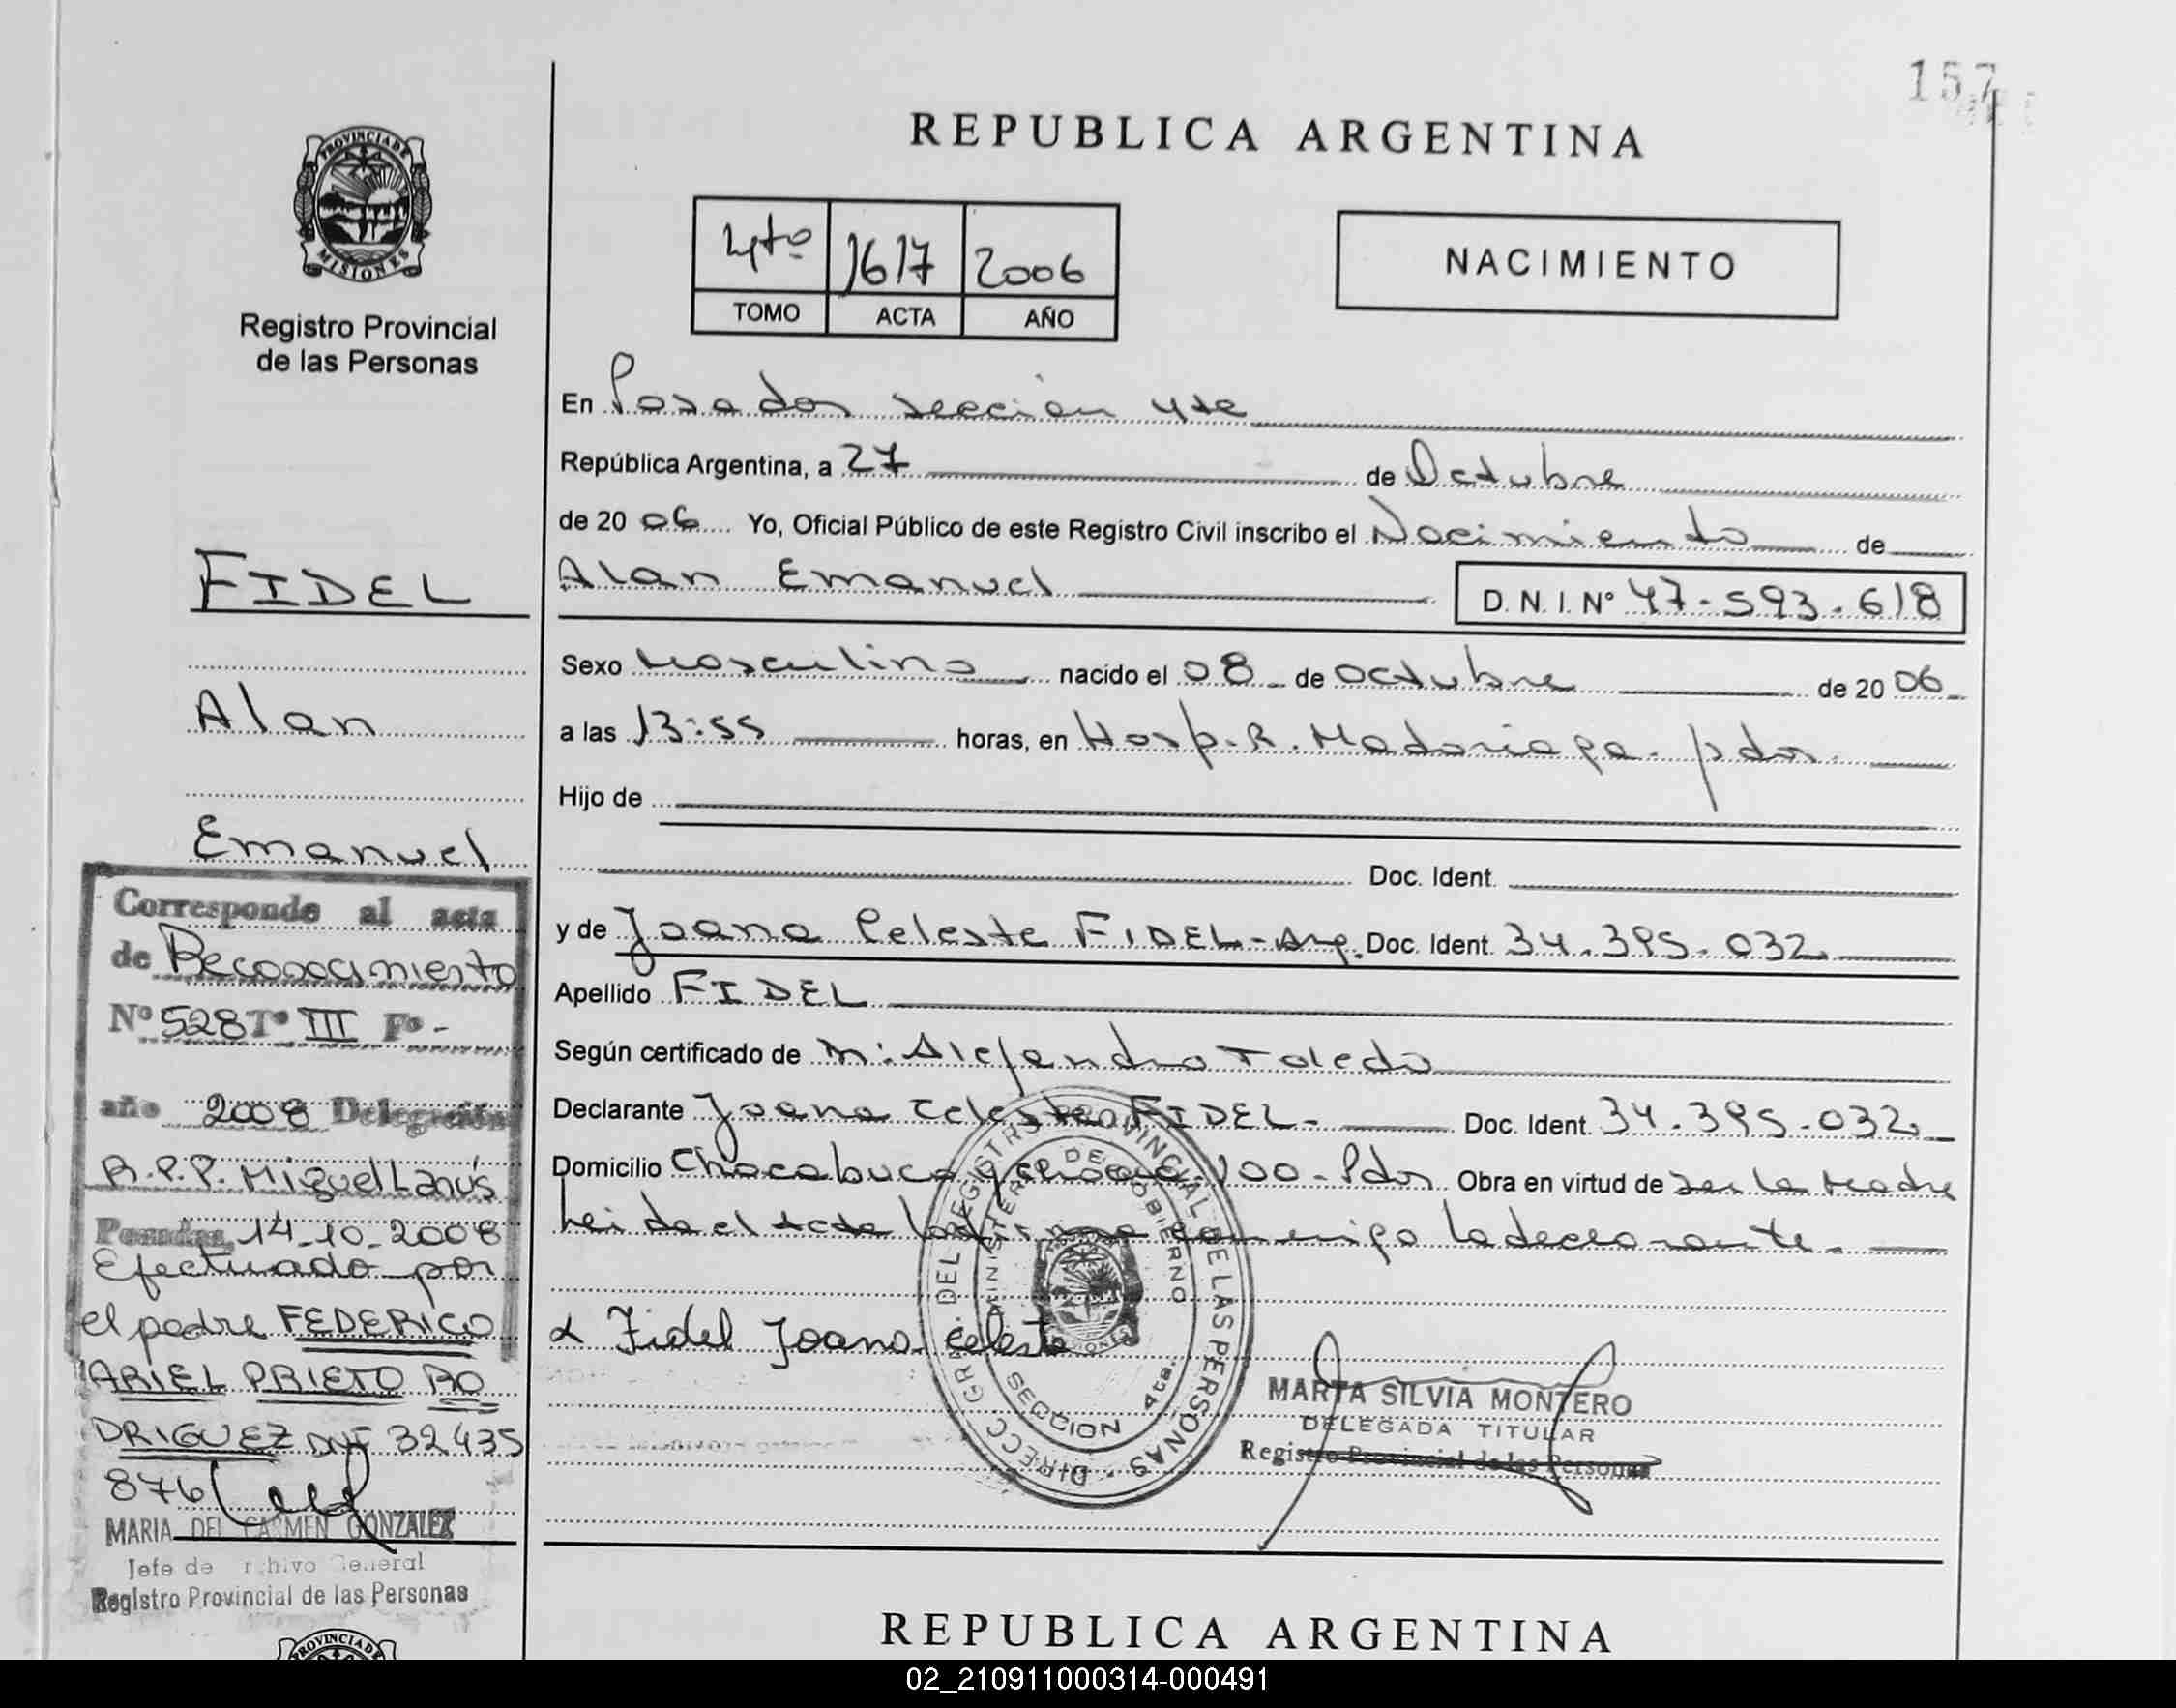 157
PROVINCIA DE
MISIONES
Registro Provincial
de las Personas
REPUBLICA ARGENTINA
4to 1617 2006
TOMO ACTA AÑO
NACIMIENTO
En Posadas sección 4ta
República Argentina, a 27 de Octubre
de 2006 Yo, Oficial Público de este Registro Civil inscribo el Nacimiento de
Alan Emanuel D.N.I. Nº 47.593.618
Sexo Masculino nacido el 08 de octubre de 2006
a las 13:55 horas, en Hosp. R. Madariaga. pdas.
Hijo de
Doc. Ident.
y de Joana Celeste FIDEL - Arg. Doc. Ident. 34.395.032
Apellido FIDEL
Según certificado de M: Alejandra Toledo
Declarante Joana Celeste FIDEL - Doc. Ident. 34.395.032
Domicilio Chacabuco y 100 - Pdas Obra en virtud de ser la Madre
Leida el Acta la firma conmigo la declarante.
x Fidel Joana Celeste
DIRECC. GRAL. DEL REGISTRO PROVINCIAL DE LAS PERSONAS
MINISTERIO DE GOBIERNO
SECCION 4ta.
MARTA SILVIA MONTERO
DELEGADA TITULAR
Registro Provincial de las Personas
FIDEL
Alan
Emanuel
Corresponde al acta
de Reconocimiento
Nº 528 Tº III Fº -
año 2008 Delegación
R.P.P. Miguel Lanús
Posadas, 14-10-2008
Efectuado por
el padre FEDERICO
ARIEL PRIETO RO
DRIGUEZ DNI 32435
876
MARIA DEL CARMEN GONZALEZ
Jefe de Archivo General
Registro Provincial de las Personas
PROVINCIA DE
REPUBLICA ARGENTINA
02_210911000314-000491